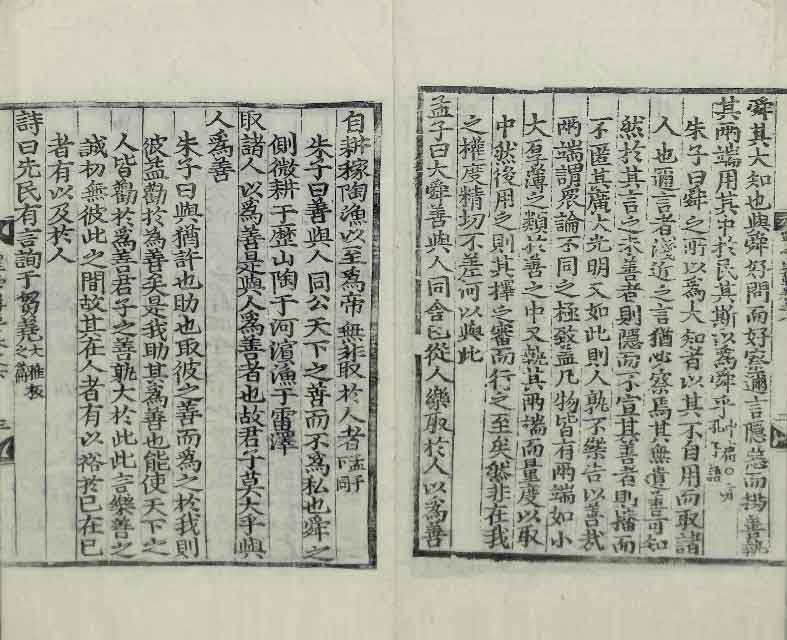 舜其大知也與舜好問而好察邇言隱惡而揚善執
其兩端用其中於民其斯以爲舜乎中庸○孔子語
朱子曰舜之所以爲大知者以其不自用而取諸
人也邇言者淺近之言猶必察焉其無遺善可知
然於其言之未善者則隱而不宣其善者則播而
不匿其廣大光明又如此則人孰不樂告以善哉
兩端謂衆論不同之極致盖凡物皆有兩端如小
大厚薄之類於善之中又執其兩端而量度以取
中然後用之則其擇之審而行之至矣然非在我
之權度精切不差何以與此
孟子曰大舜善與人同舍己從人樂取於人以爲善
自耕稼陶漁以至爲帝無非取於人者孟子
朱子曰善與人同公天下之善而不爲私也舜之
側微耕于歷山陶于河濱漁于雷澤
取諸人以爲善是與人爲善者也故君子莫大乎與
人爲善
朱子曰與猶許也助也取彼之善而爲之於我則
彼益勸於為善矣是我助其爲善也能使天下之
人皆勸於爲善君子之善孰大於此此言樂善之
誠初無彼此之間故其在人者有以裕於己在己
者有以及於人
詩曰先民有言詢于芻蕘大雅板之篇